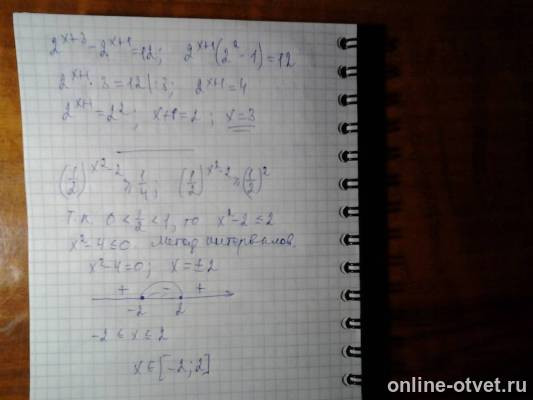 2^(x+3) - 2^(x+1) = 12; 2^(x+1)(2^2 - 1) = 12
2^(x+1) · 3 = 12 |:3; 2^(x+1) = 4
2^(x+1) = 2^2; x+1 = 2; x = 3
(1/2)^(x²-2) ≥ 1/4; (1/2)^(x²-2) ≥ (1/2)^2
Т.к. 0 < 1/2 < 1, то x²-2 ≤ 2
x²-4 ≤ 0. Метод интервалов.
x²-4=0; x = ±2
+ - +
-2 2
-2 ≤ x ≤ 2
x ∈ [-2; 2]
online-otvet.ru